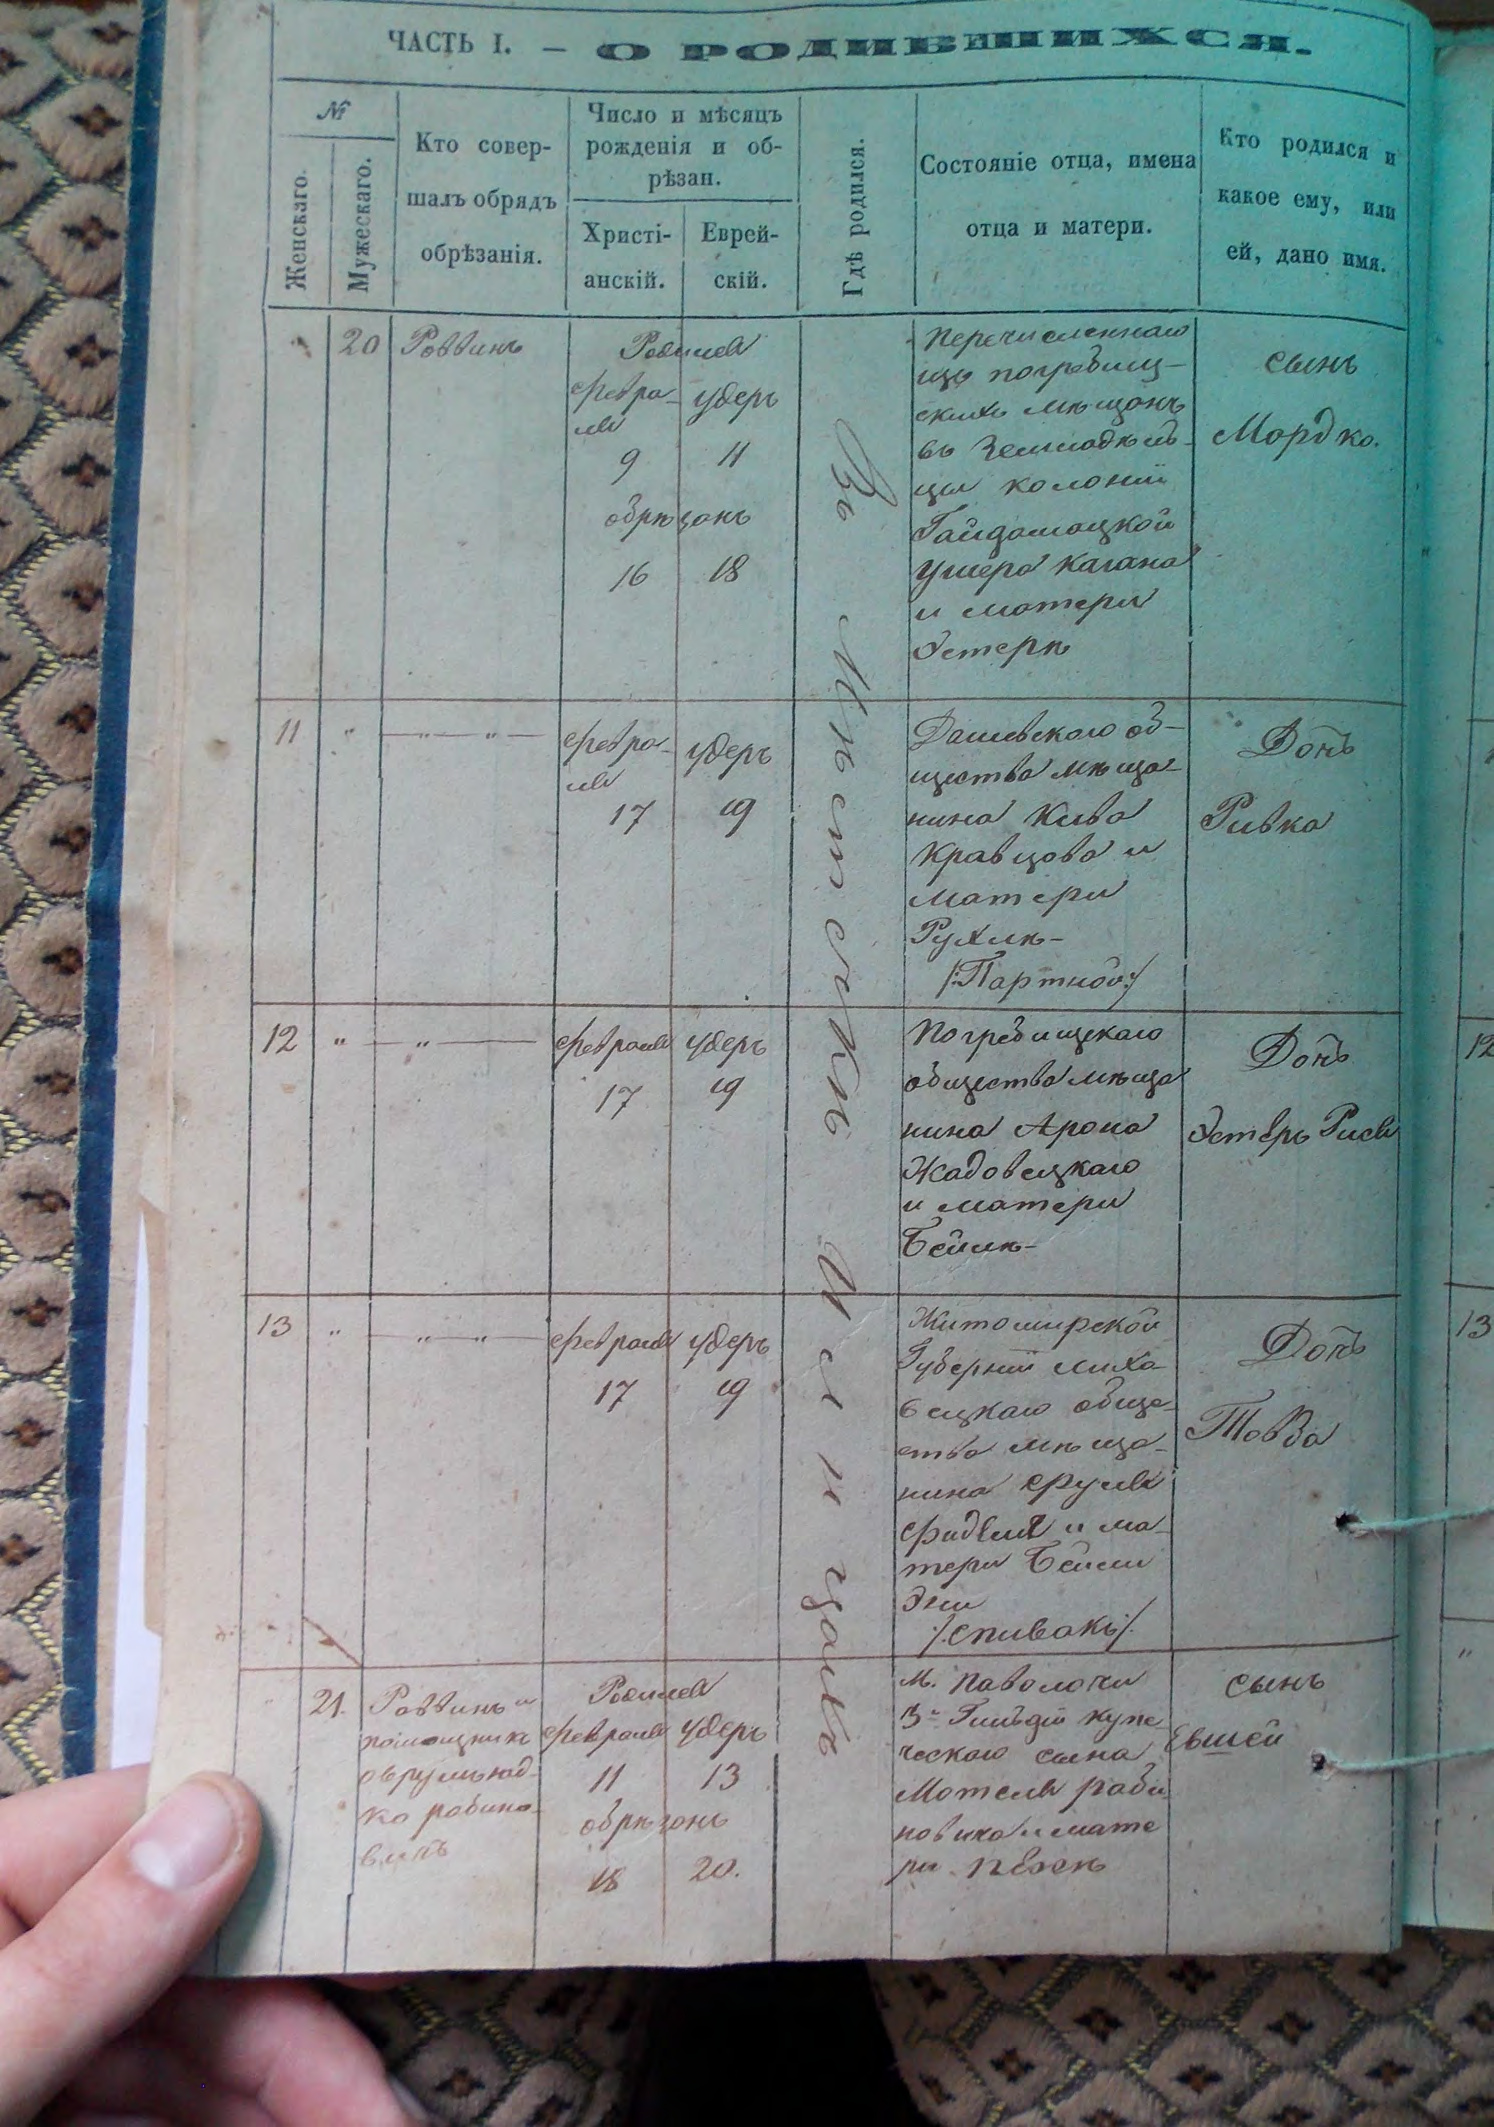 ЧАСТЬ I. — О РОДИВШИХСЯ.
№
Женскаго.
Мужескаго.
Кто совер-
шалъ обрядъ
обрѣзанія.
Число и мѣсяцъ
рожденія и об-
рѣзан.
Христі-
анскій.
Еврей-
скій.
Гдѣ родился.
Состояніе отца, имена
отца и матери.
Кто родился и
какое ему, или
ей, дано имя.
Въ Мѣстечкѣ Ильинцахъ
20
Раввинъ
Родился
Февра-
ля
9
Удеръ
11
обрѣзанъ
16
18
Перечисленнаго
изъ погребищ-
скихъ мѣщанъ
въ Земледѣль-
цы колоніи
Гайдамацкой
Ушера Кагана
и матери
Эстеры
сынъ
Мордко.
11
"
— " — " —
Февра-
ля
17
Удеръ
19
Дашевскаго об-
щества мѣща-
нина Кива
Кравцова и
матери
Рухли-
/:Партной:/
Дочь
Ривка
12
"
— " —
Февраля
17
Удеръ
19
Погребищскаго
общества мѣща
нина Арона
Жадовецкаго
и матери
Бейли-
Дочь
Эстеръ Рися
13
"
— " — " —
Февраля
17
Удеръ
19
Житомирской
Губерніи
вецкаго обще-
ства мѣща-
нина Сруля
и ма-
тери Бейли
Эни
/:Спивакъ:/
Дочь
Товба
21.
Раввинъ и
помощникъ
рабино-
вичъ
Родился
Февраля
11
Удеръ
13
обрѣзанъ
18
20.
м. Паволочи
3й Гильдіи купе
ческаго сына
Мотеля раби
новича и мате
ри
сынъ
Евшей
12
13
"